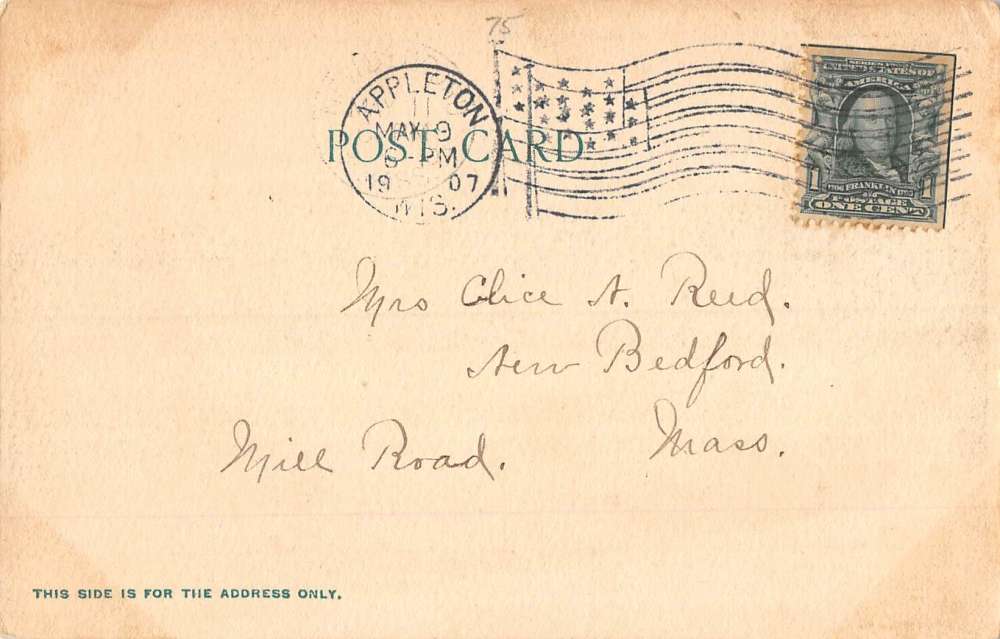 75
APPLETON
MAY 9
PM
1907
WIS.
POST CARD
SERIES 1902
UNITED STATES OF
AMERICA
1706 FRANKLIN 1790
POSTAGE
1 ONE CENT 1
Mrs Alice A. Reed.
New Bedford.
Mill Road. Mass.
THIS SIDE IS FOR THE ADDRESS ONLY.